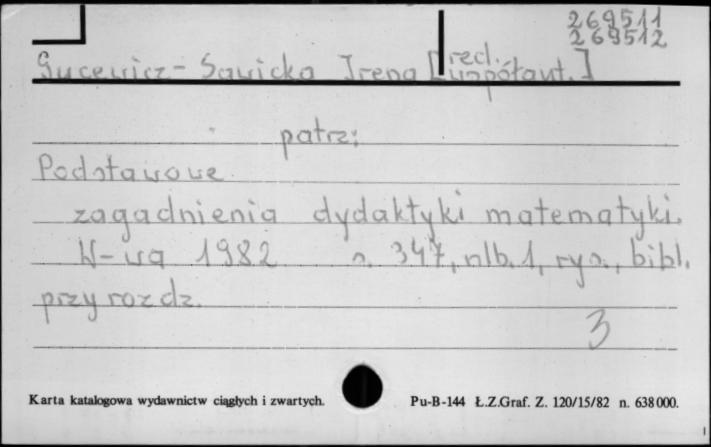 269511
269512
Gucewicz-Sawicka Irena [red.
współaut.]
patrz:
Podstawowe
zagadnienia dydaktyki matematyki.
W-wa 1982 s. 347, nlb. 1, rys., bibl.
przy rozdz.
3
Karta katalogowa wydawnictw ciągłych i zwartych. Pu-B-144 Ł.Z.Graf. Z. 120/15/82 n. 638 000.